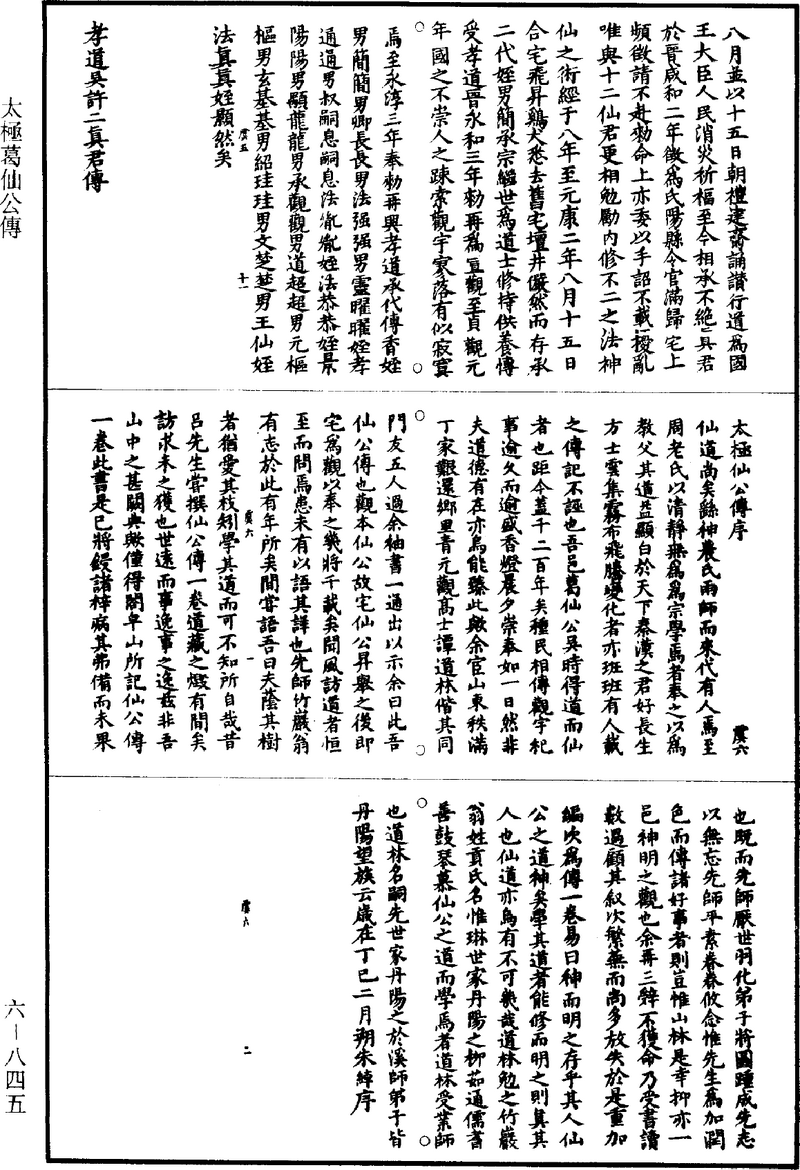 八月並以十五日朝禮建齋誦讚行道爲國
王大臣人民消災祈福至今相承不絶吳君
於晉咸和二年徵爲氏陽縣令官滿歸宅上
頻徵請不赴勑命上亦委以手詔不載擾亂
唯與十二仙君更相勉勵內修不二之法神
仙之術經于八年至元康二年八月十五日
合宅飛昇鷄犬悉去舊宅壇井儼然而存承
二代姪男簡承宗繼世爲道士修持供養傳
受孝道晉永和三年勑再爲宣觀至貞觀元
年國之不崇人之踈索觀宇寥落有似寂寞
焉至永淳三年奉勑再興孝道承代傳香姪
男簡簡男卿長長男法强强男靈曜曜姪孝
通通男叔嗣嗣息法胤胤姪法恭恭姪景
陽陽男顯龍龍男承觀觀男道超超男元樞
樞男玄基基男紹珪珪男文楚楚男王仙姪
法真真姪顯然矣
虞五
十一
孝道吳許二真君傳
太極葛仙公傳
六－八四五
太極仙公傳序
虞六
仙道尚矣繇神農氏雨師而來代有人焉至
周老氏以清靜無爲爲宗學焉者奉之以爲
教父其道益顯白於天下秦漢之君好長生
方士雲集霧布飛騰變化者亦班班有人載
之傳記不誣也吾邑葛仙公吳時得道而仙
者也距今蓋千二百年矣種民相傳觀宇祀
事逾久而逾盛香燈晨夕崇奉如一日然非
夫道德有在亦烏能臻此歟余官山東秩滿
丁家艱還鄉里青元觀高士譚道林偕其同
門友五人過余袖書一通出以示余曰此吾
仙公傳也觀本仙公故宅仙公昇舉之後即
宅爲觀以奉之幾將千載矣聞風訪道者恒
至而問焉患未有以語其詳也先師竹巖翁
有志於此有年所矣間嘗語吾曰夫蔭其樹
者猶愛其枝矧學其道而可不知所自哉昔
呂先生嘗撰仙公傳一卷道藏之燬有間矣
訪求未之獲也世遠而事逸事之逸兹非吾
山中之甚闕典歟僅得閣皁山所記仙公傳
一卷此書是已將鋟諸梓病其弗備而未果
虞六
一
也既而先師厭世羽化弟子將圖踵成先志
以無忘先師平素眷眷攸念惟先生爲加潤
色而傳諸好事者則豈惟山林是幸抑亦一
邑神明之觀也余再三辭不獲命乃受書讀
數過顧其叙次繁蕪而尚多放失於是重加
編次爲傳一卷易曰神而明之存乎其人仙
公之道神矣學其道者能修而明之則真其
人也仙道亦烏有不可幾哉道林勉之竹巖
翁姓貢氏名惟琳世家丹陽之柳茹通儒書
善鼓琴慕仙公之道而學焉者道林受業師
也道林名嗣先世家丹陽之於溪師弟子皆
丹陽望族云歲在丁巳二月朔朱綽序
虞六
二